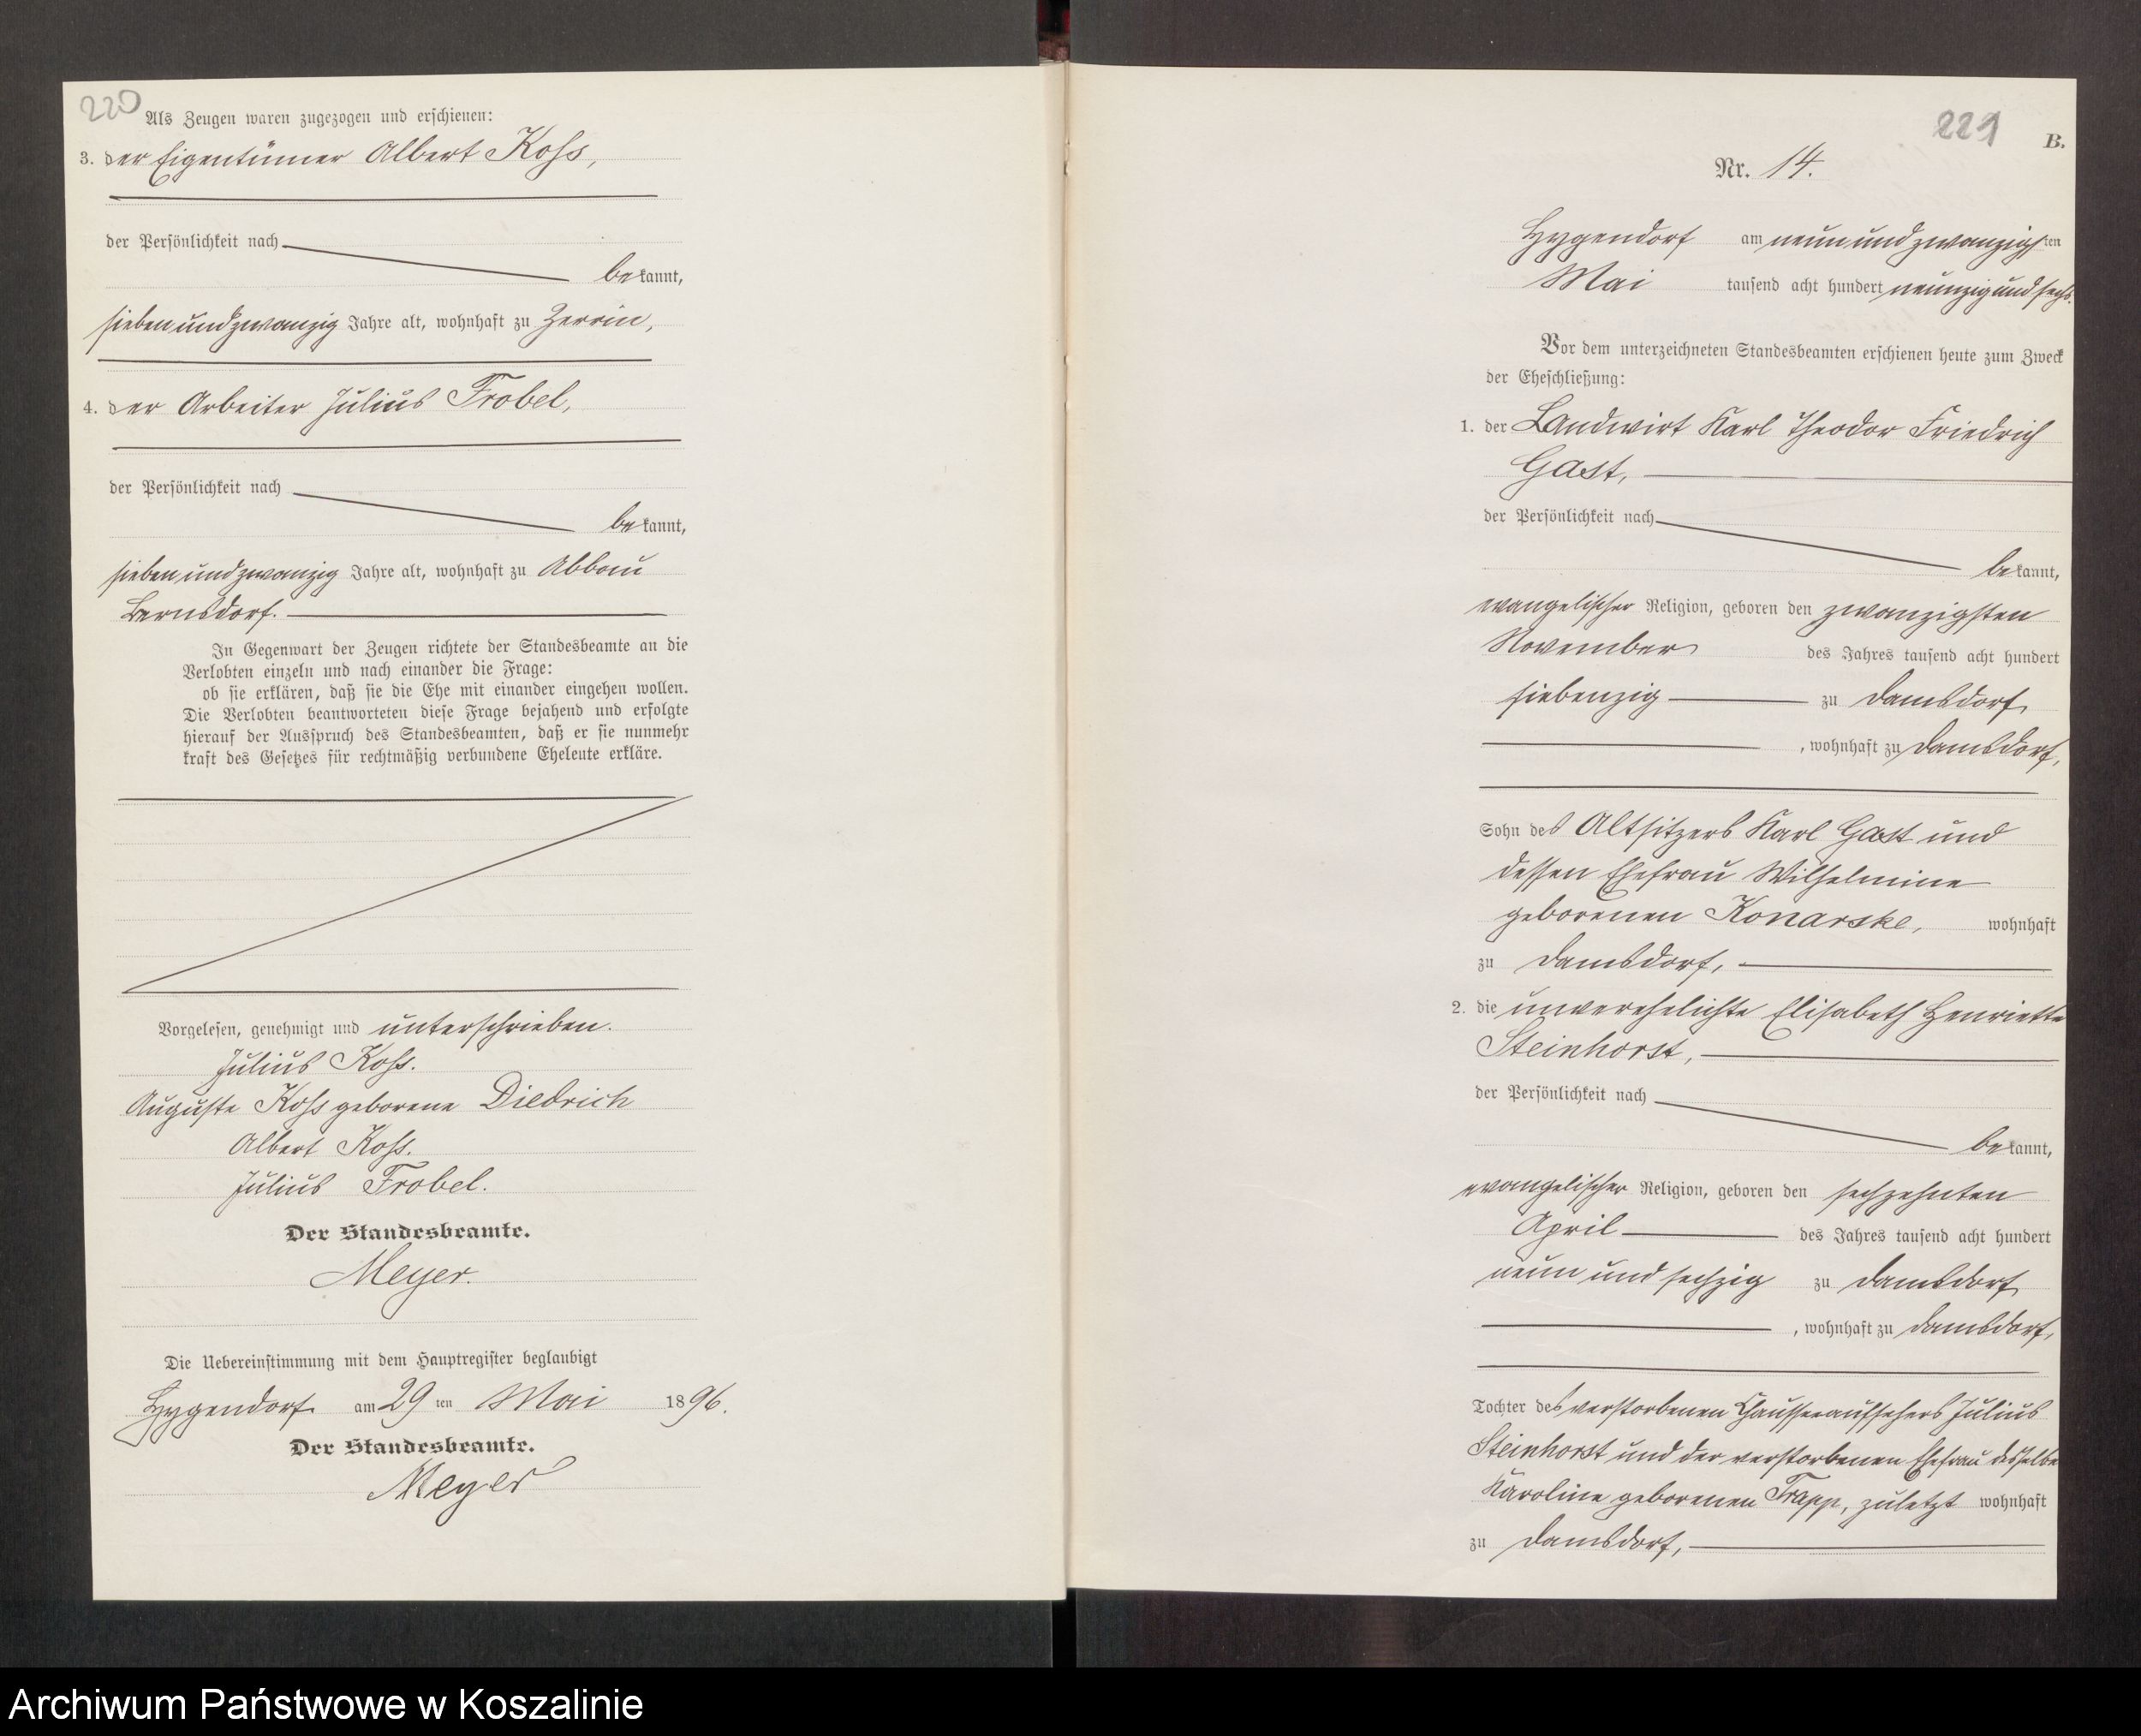 220
Als Zeugen waren zugezogen und erschienen:
3. der Eigentümer Albert Koss,
der Persönlichkeit nach
bekannt,
siebenundzwanzig Jahre alt, wohnhaft zu Zerrin,
4. der Arbeiter Julius Frobel,
der Persönlichkeit nach
bekannt,
siebenundzwanzig Jahre alt, wohnhaft zu Abbau
Bernsdorf.
In Gegenwart der Zeugen richtete der Standesbeamte an die
Verlobten einzeln und nach einander die Frage:
ob sie erklären, daß sie die Ehe mit einander eingehen wollen.
Die Verlobten beantworteten diese Frage bejahend und erfolgte
hierauf der Ausspruch des Standesbeamten, daß er sie nunmehr
kraft des Gesetzes für rechtmäßig verbundene Eheleute erkläre.
Vorgelesen, genehmigt und unterschrieben.
Julius Koss.
Auguste Koss geborene Diedrich
Albert Koss.
Julius Frobel.
Der Standesbeamte.
Meyer.
Die Uebereinstimmung mit dem Hauptregister beglaubigt
Hygendorf am 29ten Mai 1896.
Der Standesbeamte.
Meyer
221
B.
Nr. 14.
Hygendorf am neunundzwanzigsten
Mai tausend acht hundert neunzig und sechs.
Vor dem unterzeichneten Standesbeamten erschienen heute zum Zweck
der Eheschließung:
1. der Landwirt Karl Theodor Friedrich
Gast,
der Persönlichkeit nach
bekannt,
evangelischer Religion, geboren den zwanzigsten
November des Jahres tausend acht hundert
siebenzig zu Damsdorf,
, wohnhaft zu Damsdorf,
Sohn des Altsitzers Karl Gast und
dessen Ehefrau Wilhelmine
geborenen Konarske, wohnhaft
zu Damsdorf,
2. die unverehelichte Elisabeth Henriette
Steinhorst,
der Persönlichkeit nach
bekannt,
evangelischer Religion, geboren den sechzehnten
April des Jahres tausend acht hundert
neun und sechzig zu Damsdorf
, wohnhaft zu Damsdorf,
Tochter des verstorbenen Chausseeaufsehers Julius
Steinhorst und der verstorbenen Ehefrau desselben
Karoline geborenen Trapp, zuletzt wohnhaft
zu Damsdorf,
Archiwum Państwowe w Koszalinie